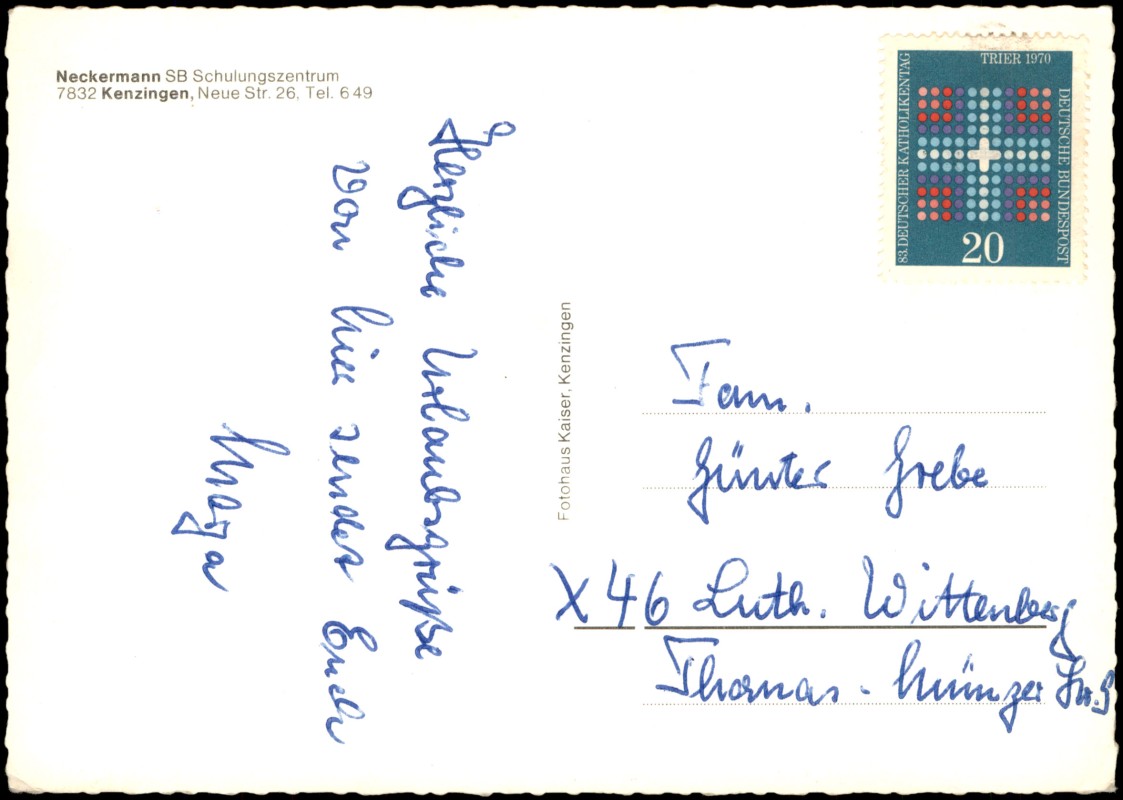 Neckermann SB Schulungszentrum
7832 Kenzingen, Neue Str. 26, Tel. 6 49
Herzliche Urlaubsgrüße
von hier sendet Euch
Fotohaus Kaiser, Kenzingen
83. DEUTSCHER KATHOLIKENTAG
TRIER 1970
DEUTSCHE BUNDESPOST
20
Fam.
Günter Grebe
X46 Luth. Wittenberg
Thomas-Münzer Str.